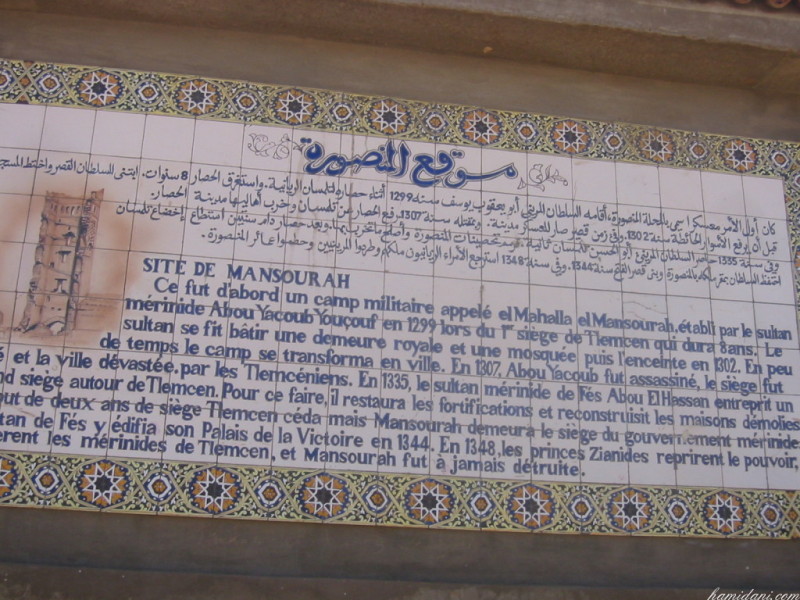 موقع المنصورة
كان أول الأمر معسكرا سمي بالمحلة المنصورة، أقامه السلطان المريني أبو يعقوب يوسف سنة 1299 أثناء حصاره لتلمسان الزيانية. واستغرق الحصار 8 سنوات. ابتنى السلطان القصر واختط المسجد
قبل أن يرفع الأسوار المحافظة سنة 1302. وفي زمن قصير صار المعسكر مدينة. وبمقتله سنة 1307، رفع الحصار عن تلمسان وخرب أهاليها مدينة الحصار.
وفي سنة 1335 حاصر السلطان المريني أبو الحسن تلمسان ثانية. تحصينات المنصورة وبعد حصار دام سنتين استطاع إخضاع تلمسان
احتفظ السلطان بمقر بالمنصورة وبنى قصر الفتح سنة 1344. وفي سنة 1348 استرجع الأمراء الزيانيون ملكهم وطردوا المرينيين وحطموا عمائر المنصورة.
SITE DE MANSOURAH
Ce fut d'abord un camp militaire appelé el Mahalla el Mansourah, établi par le sultan
mérinide Abou Yacoub Youçouf en 1299 lors du 1er siège de Tlemcen qui dura 8 ans. Le
sultan se fit bâtir une demeure royale et une mosquée puis l'enceinte en 1302. En peu
de temps le camp se transforma en ville. En 1307, Abou Yacoub fut assassiné, le siège fut
é et la ville dévastée. par les Tlemcéniens. En 1335, le sultan mérinide de Fès Abou El Hassan entreprit un
nd siège autour de Tlemcen. Pour ce faire, il restaura les fortifications et reconstruisit les maisons démolies
out de deux ans de siège Tlemcen céda mais Mansourah demeura le siège du gouvernement mérinide
tan de Fés y édifia son Palais de la Victoire en 1344. En 1348, les princes Zianides reprirent le pouvoir,
èrent les mérinides de Tlemcen, et Mansourah fut à jamais détruite.
hamidani.com